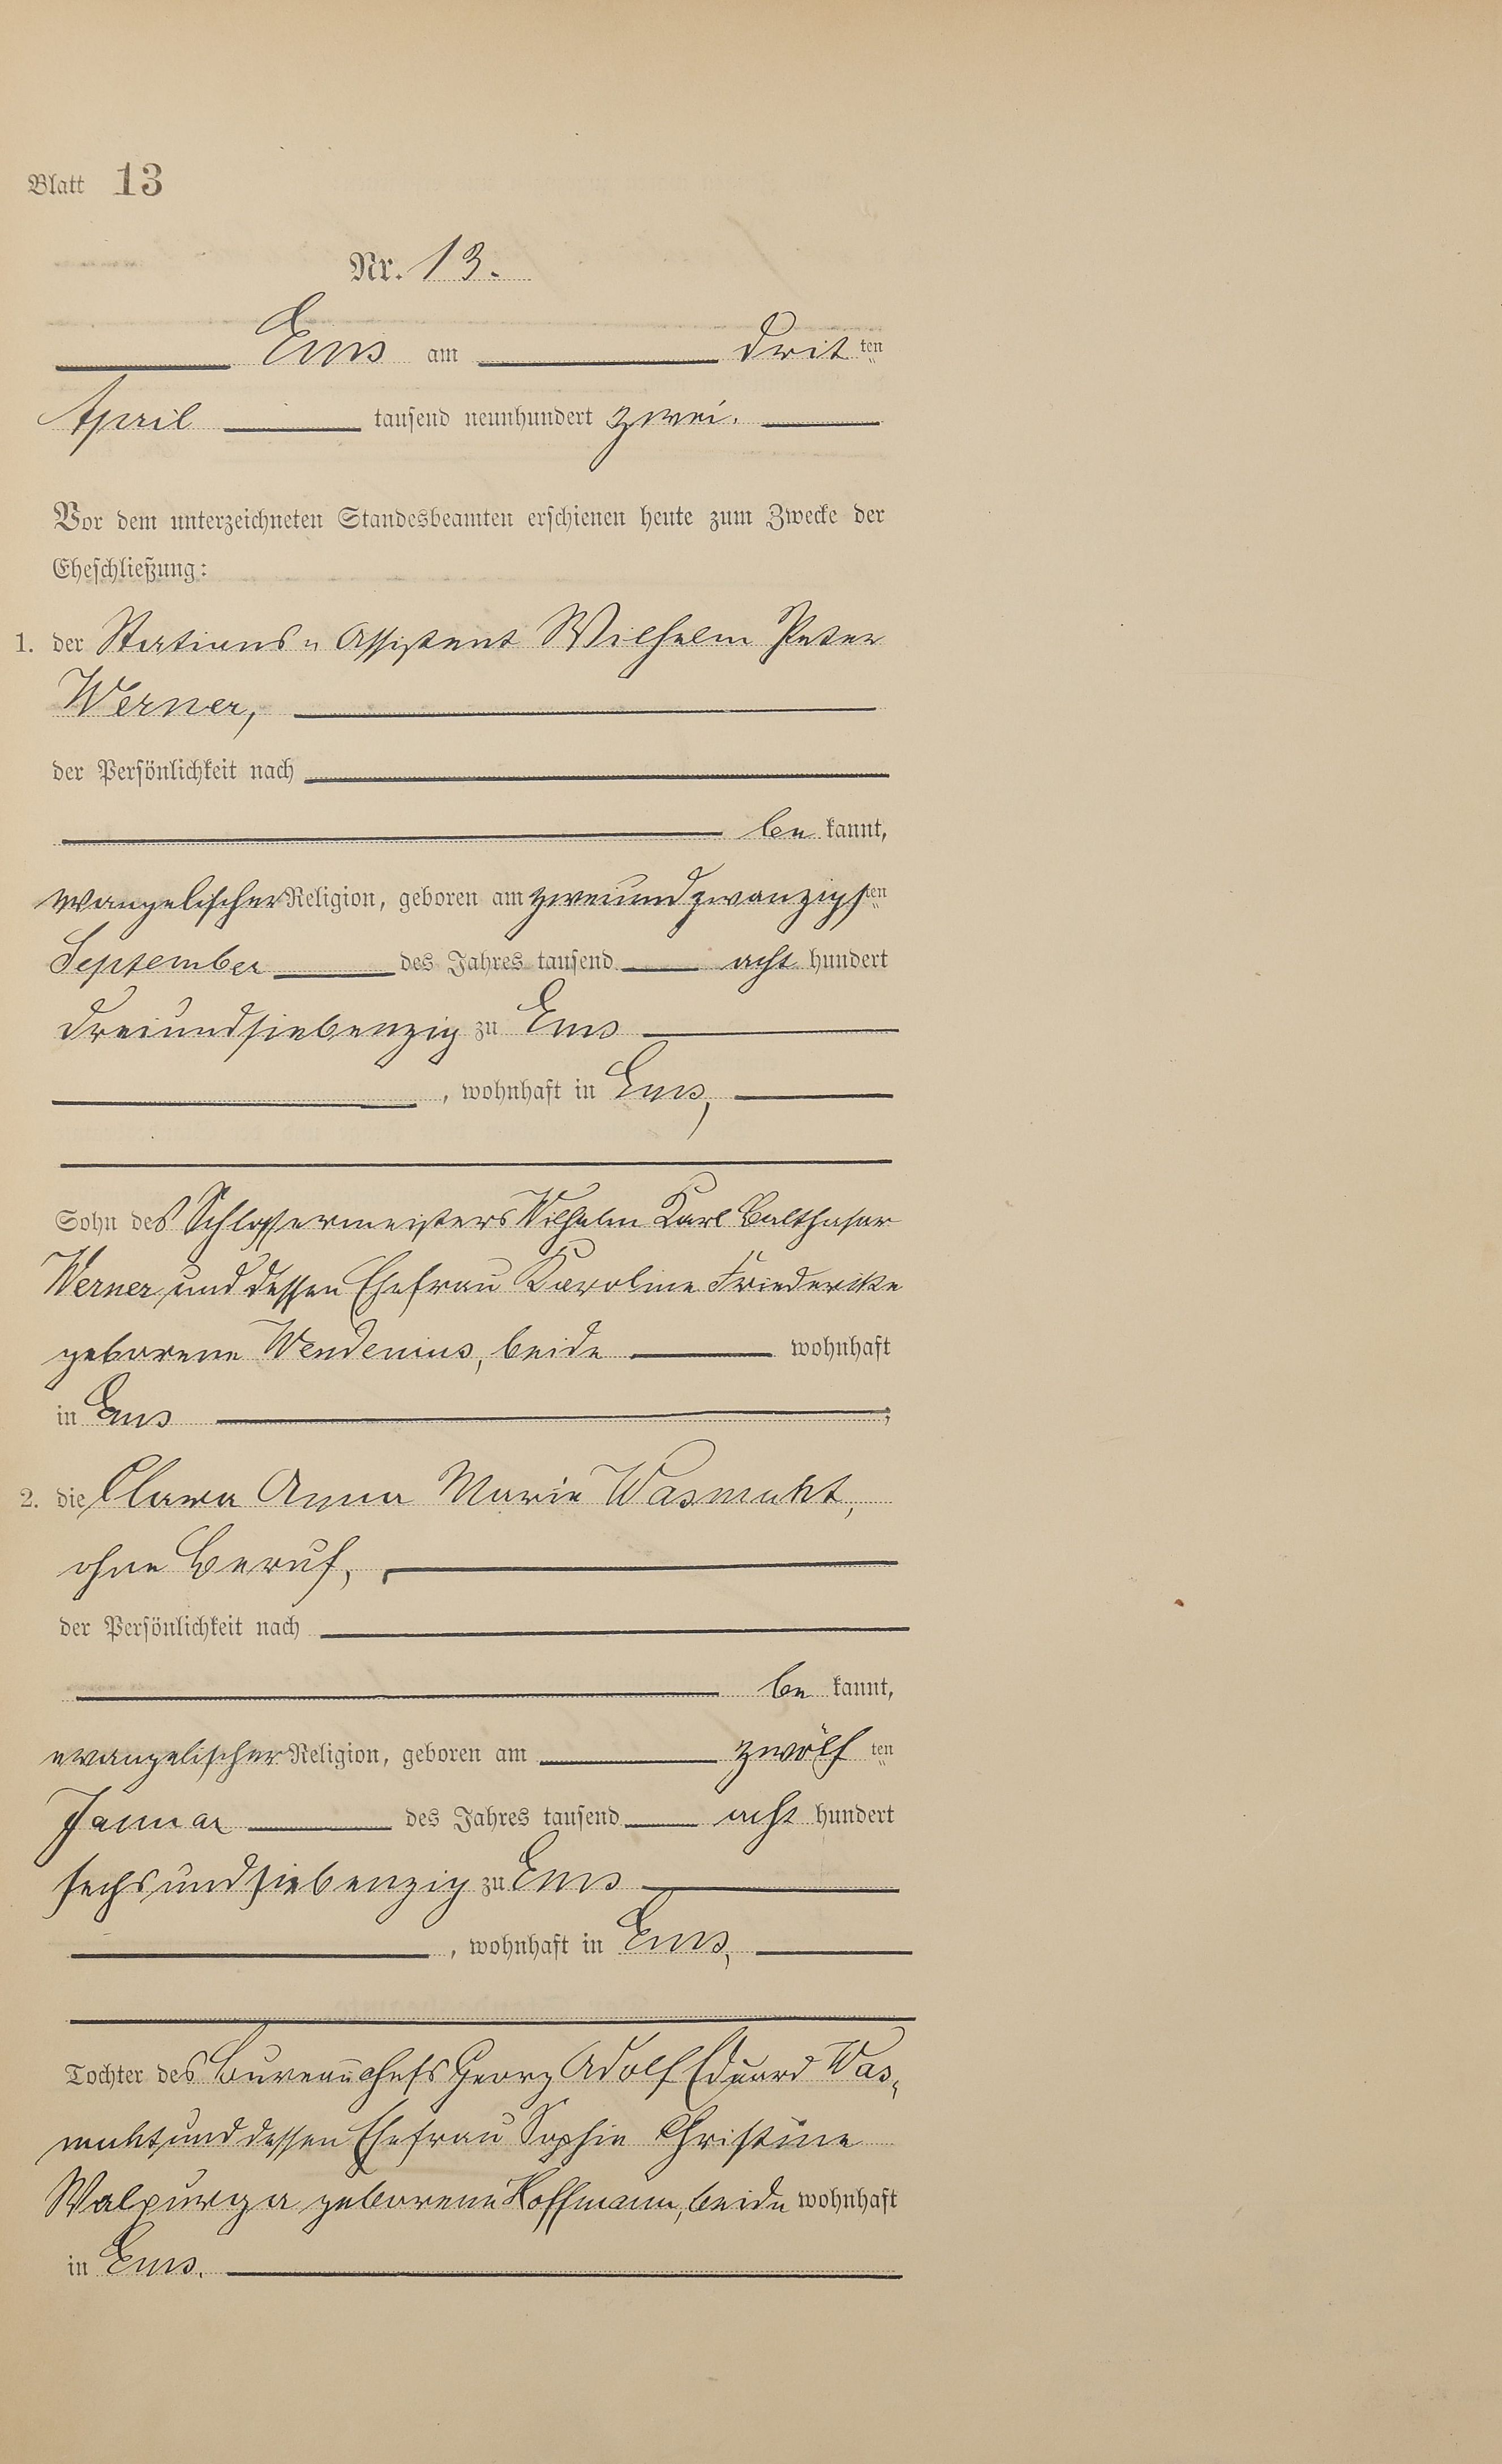 Blatt 13
Nr. 13.
Ems am drit ten
April tausend neunhundert zwei.
Vor dem unterzeichneten Standesbeamten erschienen heute zum Zwecke der
Eheschließung:
1. der Stations=Assistent Wilhelm Peter
Werner,
der Persönlichkeit nach
be kannt,
evangelischer Religion, geboren am zweiundzwanzigsten
September des Jahres tausend acht hundert
dreiundsiebenzig zu Ems
, wohnhaft in Ems,
Sohn des Schlossermeisters Wilhelm Karl Balthasar
Werner und dessen Ehefrau Karoline Friedericke
geborene Wendenius, beide wohnhaft
in Ems ;
2. die Clara Anna Marie Wasmuht,
ohne Beruf,
der Persönlichkeit nach
be kannt,
evangelischer Religion, geboren am zwölf ten
Januar des Jahres tausend acht hundert
sechsundsiebenzig zu Ems
, wohnhaft in Ems,
Tochter des Bureauchefs Georg Adolf Eduard Was-
muht und dessen Ehefrau Sophie Christine
Walpurga geborene Hoffmann, beide wohnhaft
in Ems.